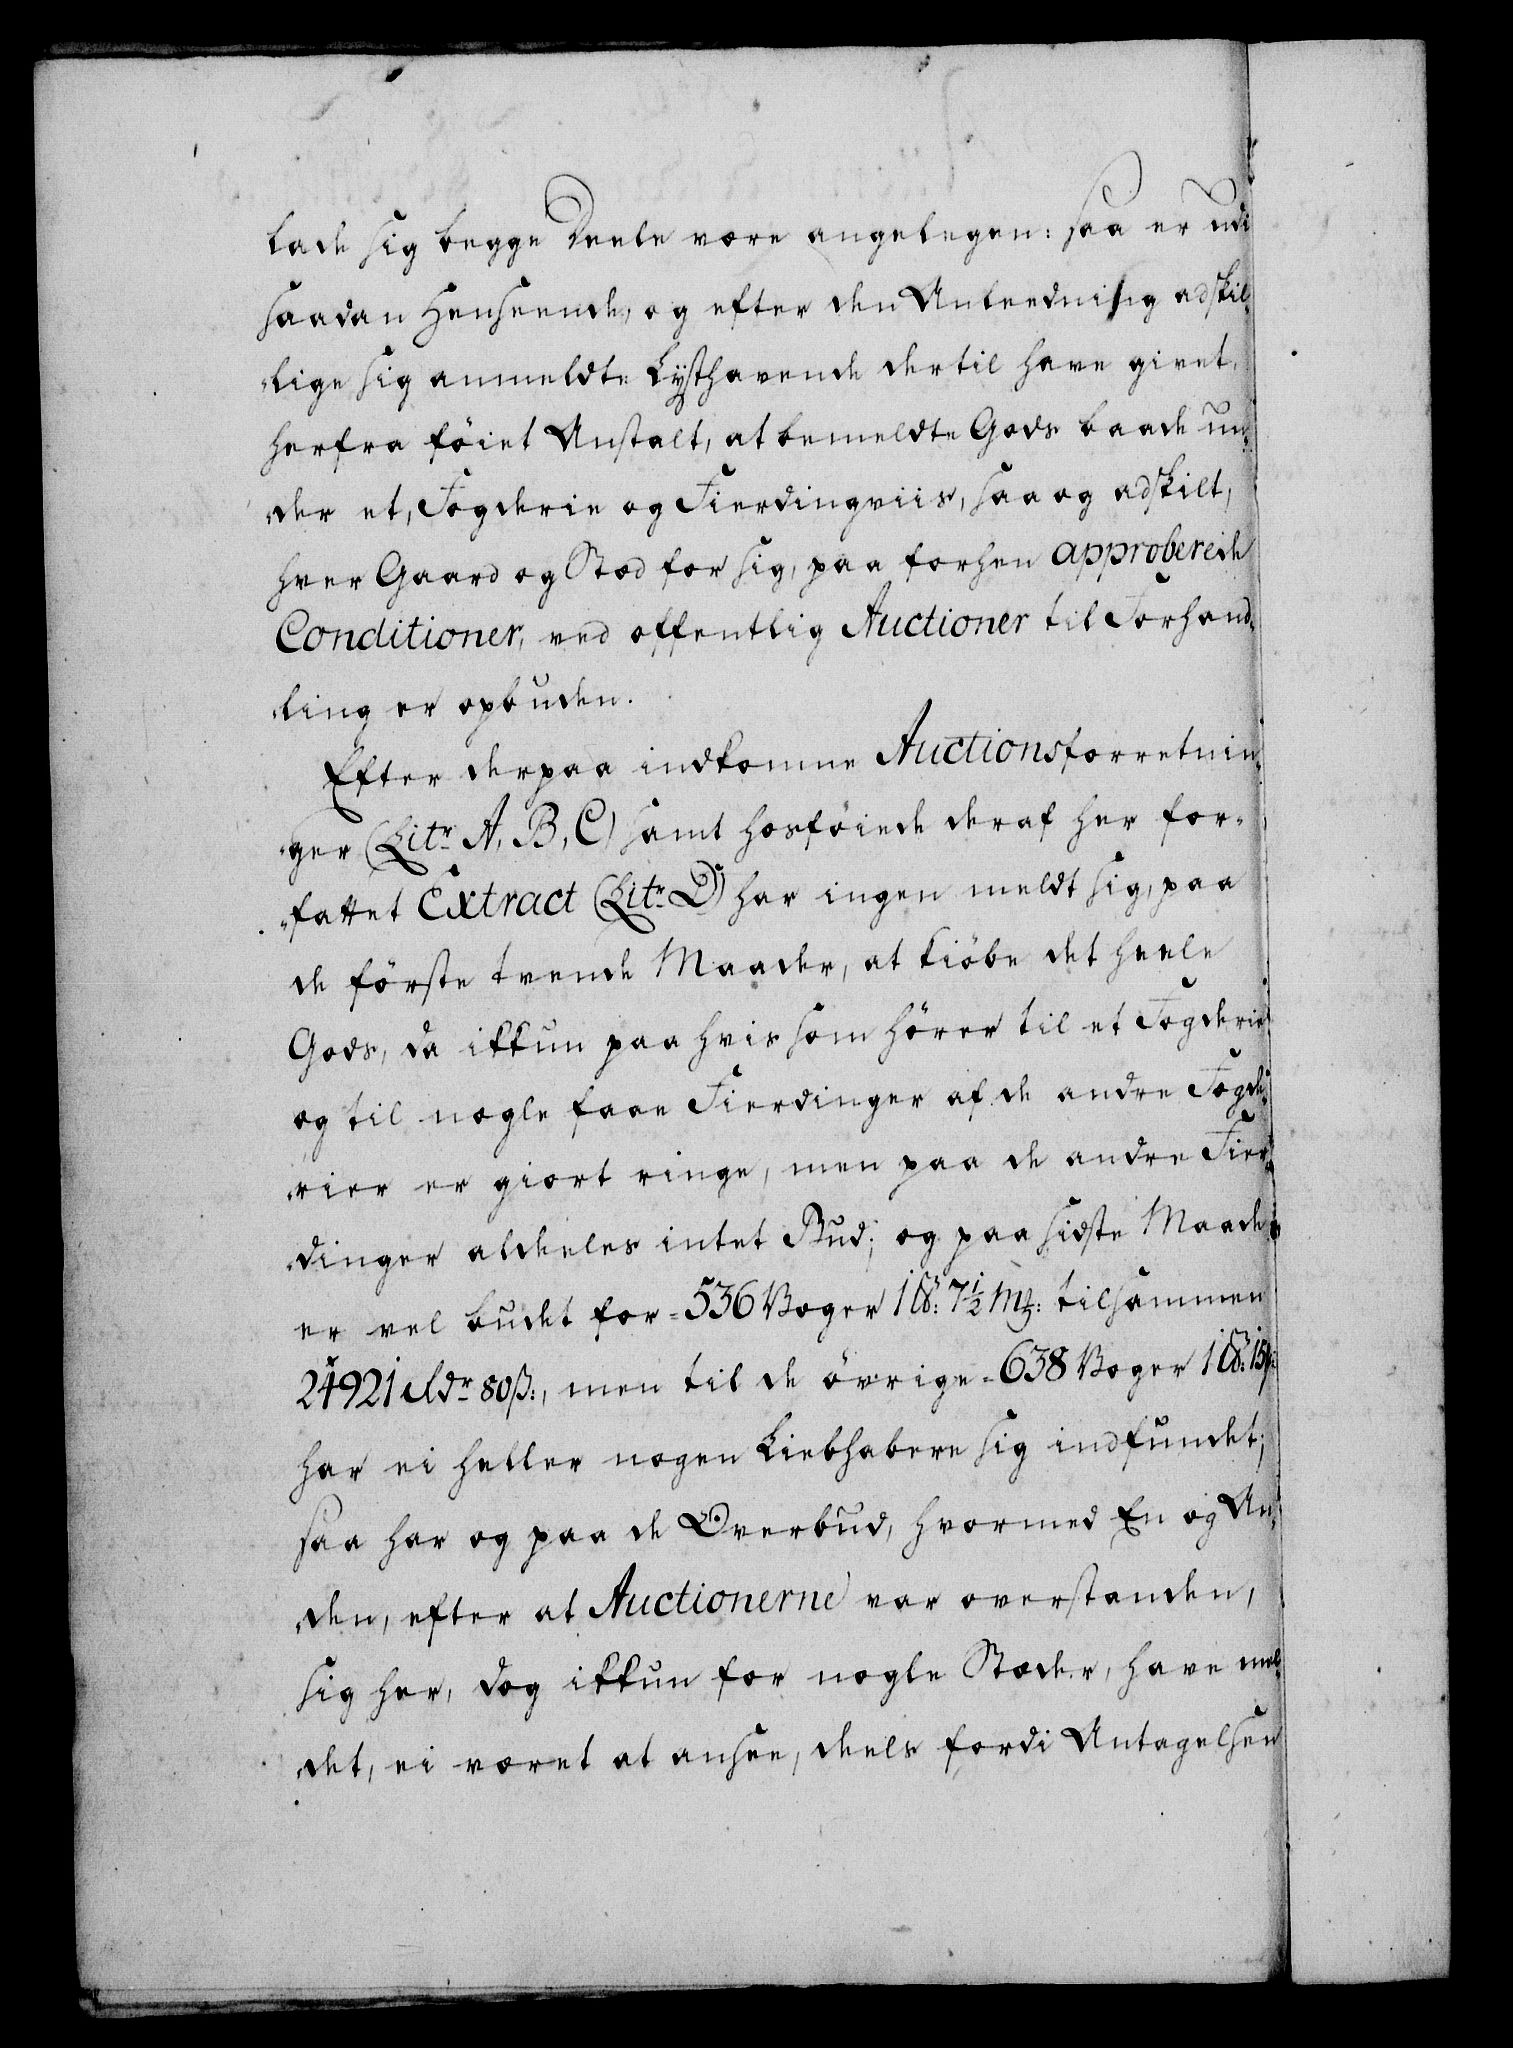 lade sig begge Deele være angelegen: saa er udi
saadan Henseende, og efter den Anleedning adskil-
lige sig anmeldte Lysthavende dertil have givet,
herfra föiet Anstalt, at bemeldte Gods baade un-
der et, Fogderie og Fierdingviis, saa og adskilt,
hver Gaard og Stæd for sig, paa forhen approberede
Conditioner, ved offentlig Auctioner til Forhand-
ling er opbuden.
Efter derpaa indkomne Auctionsforretnin-
ger (Litr A, B, C) samt hosföiede deraf her for-
fattet Extract (Litr D) har ingen meldt sig, paa
de förste tvende Maader, at kiöbe det heele
Gods, da ikkun paa hvis som hörer til et Fogderie
og til nogle faae Fierdinger af de andre Fogde-
rier er giort ringe, men paa de andre Fier-
dinger aldeles intet Bud; og paa sidste Maade
er vel budet for 536 Voger 1 ℔: 7½ M℔: tilsammen
24921 Rdr 80 ß:, men til de övrige 638 Voger 1 ℔: 15
har ei heller nogen Liebhabere sig indfundet;
saa har og paa de Overbud, hvormed En og An-
den, efter at Auctionerne var overstanden,
sig her, dog ikkun for nogle Stæder, have mel-
det, ei været at ansee, deels fordi Antagelsen